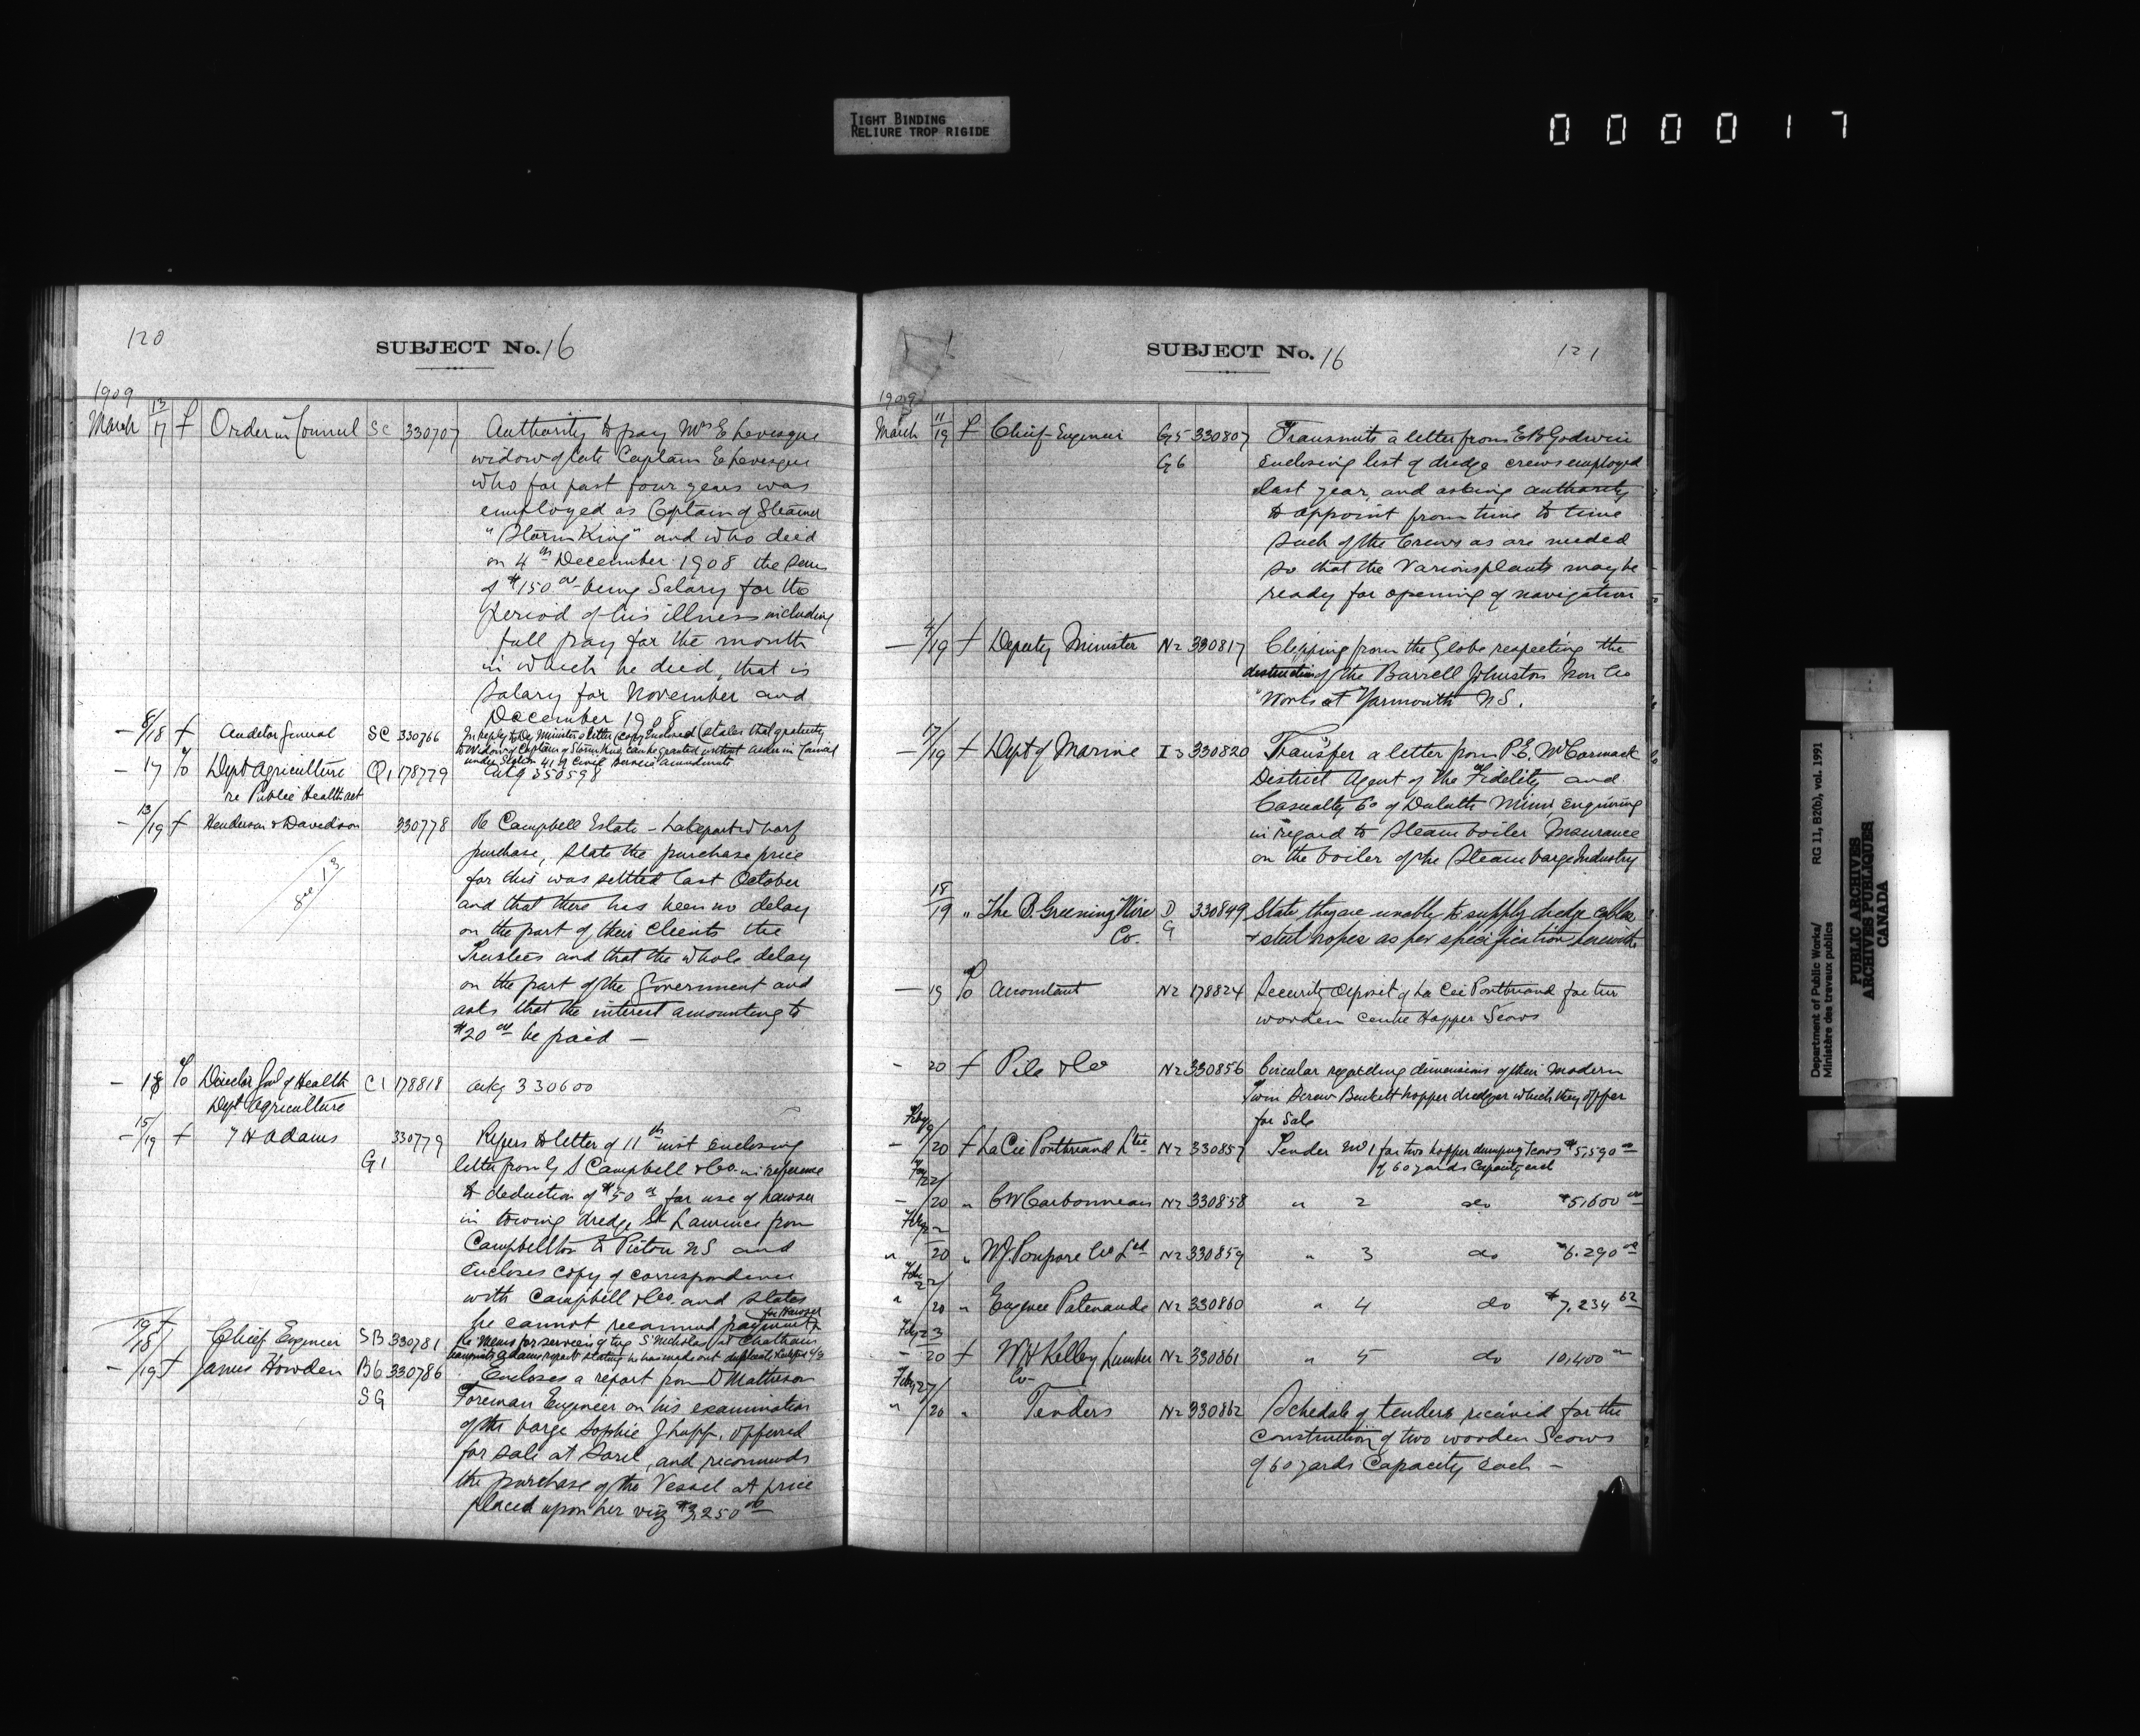 TIGHT BINDING
RELIURE TROP RIGIDE
000017
120
SUBJECT No. 16
1909
March 13/17 f Order in Council SC 330707 Authority to pay Mrs E Levesque
widow of late Captain E Levesque
who for past four years was
employed as Captain of Steamer
"Storm King" and who died
on 4th December 1908 the sum
of $150 00 being Salary for the
period of his illness including
full pay for the month
in which he died, that is
Salary for November and
December 1908
— 8/18 f Auditor General SC 330766 In reply to Dy Ministers letter (copy Enclosed) states that gratuity
to Widow of Captain of Storm King can be granted without order in Council
under Section 41 of Civil Service amendments
— 17 To Dept Agriculture Q1 178779
re Public Health act
— 13/19 f Henderson & Davidson 330778 Re Campbell Estate – wharf
purchase, state the purchase price
for this was settled last October
and that there has been no delay
on the part of their Clients the
Trustees and that the whole delay
on the part of the Government and
asks that the interest amounting to
$20 00 be paid —
— 18 To Director Genl of Health C1 178818 330600
Dept Agriculture
— 15/19 f T H Adams 330779 Refers to letter of 11th inst enclosing
G1 letter from G S Campbell & Co. in reference
to deduction of $50 00 for use of hawser
in towing dredge St Lawrence from
Campbellton to Pictou NS and
Encloses copy of correspondence
with Campbell & Co. and states
he cannot recommend payment
for Hawser
Chief Engineer SB 330781 Re Memo for services of tug St Nicholas at Chatham
— /19 f James Howden B6 330786 Encloses a report from D Matheson
SG Foreman Engineer on his examination
of the barge Sophie J Lupp, offered
for sale at Sorel, and recommends
the purchase of the Vessel at price
placed upon her viz $3,250 00
SUBJECT No. 16
121
1909
March 11/19 f Chief Engineer G5 330807 Transmits a letter from E B Godwin
G6 enclosing list of dredge crews employed
last year, and asking authority
to appoint from time to time
such of the Crews as are needed
so that the Various plants may be
ready for opening of navigation
— 4/19 f Deputy Minister N2 330817 Clipping from the Globe respecting the
destruction of the Burrell Johnston Iron Co
Works at Yarmouth NS.
— 17/19 f Dept of Marine I3 330820 Transfer a letter from P.E. McCormack
District Agent of the Fidelity and
Casualty Co of Duluth Minn, Enquiring
in regard to Steam boiler Insurance
on the boiler of the Steam barge Industry
18/19 " The B. Greening Wire D 330849 State they are unable to supply dredge cables
Co. G & steel ropes as per specification herewith
— 19 To Accountant N2 178824 Security deposit of La Cie Pontbriand for two
wooden centre Hopper Scows
- 20 f Pile & Co N2 330856 Circular regarding dimensions of their modern
Twin Screw Buckett hopper dredger which they offer
for Sale
— /20 f La Cie Pontbriand Ltee N2 330857 Tender No 1 for two hopper dumping scows $5,590 00
of 60 yards Capacity each
— 22/20 " C W Carbonneau N2 330858 " 2 do $5,600 00
" /20 " W.J. Poupore Co Ltd N2 330859 " 3 do $6,290 00
" 22/20 " Eugene Patenaude N2 330860 " 4 do $7,234 62
Feby 23
— 20 f W H Kelley Lumber N2 330861 " 5 do 10,400 00
Co
Feby 27
" /20 " Tenders N2 330862 Schedule of tenders received for the
construction of two wooden Scows
of 60 yards Capacity each —
Department of Public Works/
Ministère des travaux publics
RG 11, B2(b), vol. 1991
PUBLIC ARCHIVES
ARCHIVES PUBLIQUES
CANADA